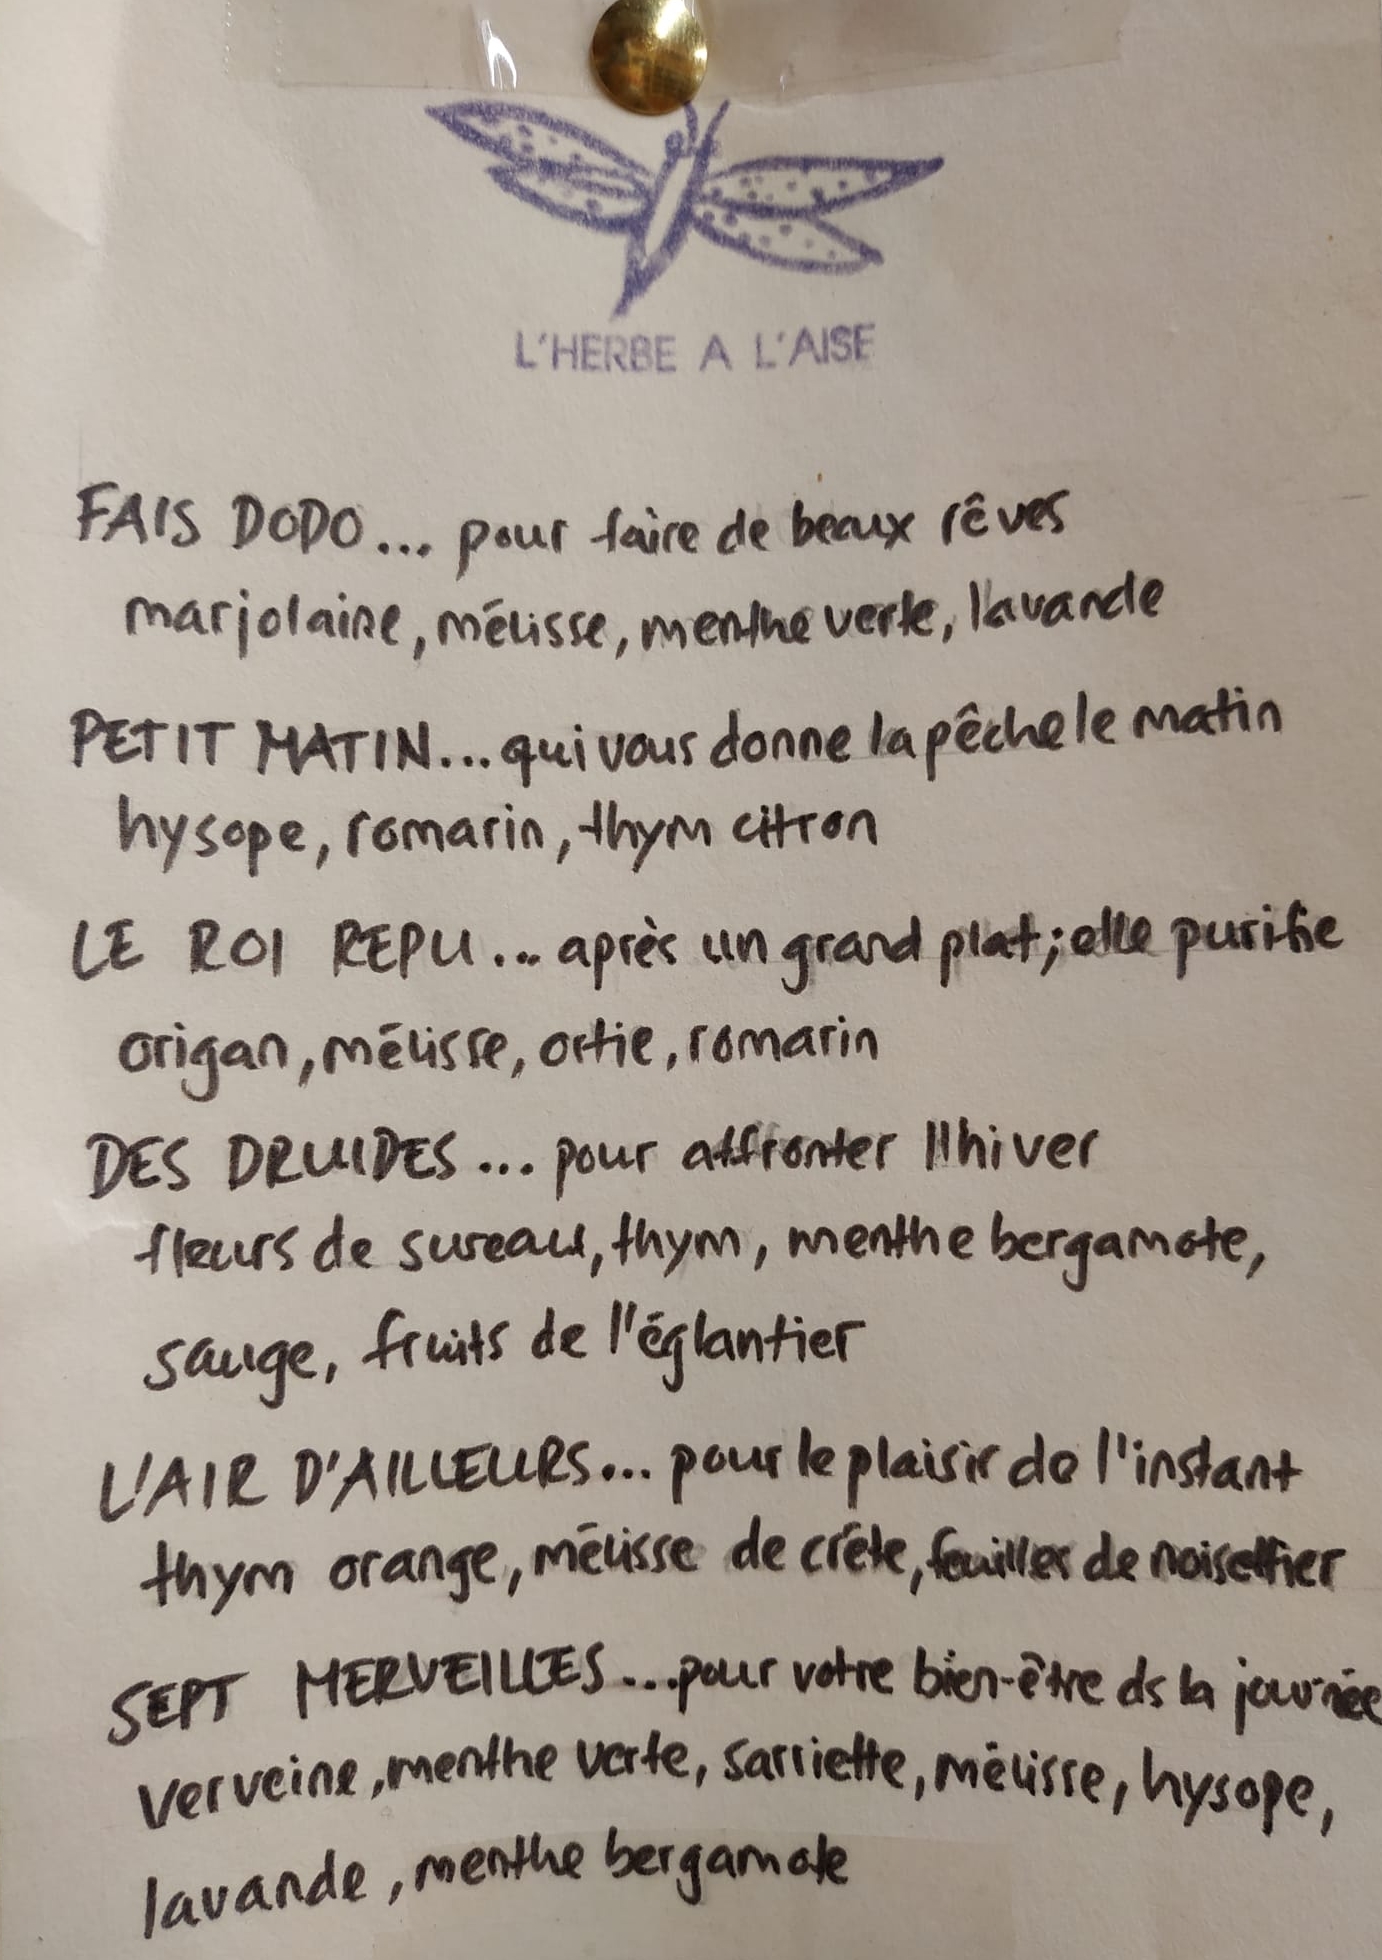 L'HERBE A L'AISE
FAIS DODO... pour faire de beaux rêves
marjolaine, mélisse, menthe verte, lavande
PETIT MATIN... qui vous donne la pêche le matin
hysope, romarin, thym citron
LE ROI REPU... après un grand plat; elle purifie
origan, mélisse, ortie, romarin
DES DRUIDES... pour affronter l'hiver
fleurs de sureau, thym, menthe bergamote,
sauge, fruits de l'églantier
L'AIR D'AILLEURS... pour le plaisir de l'instant
thym orange, mélisse de crète, feuilles de noisettier
SEPT MERVEILLES... pour votre bien-être ds la journée
verveine, menthe verte, sarriette, mélisse, hysope,
lavande, menthe bergamote